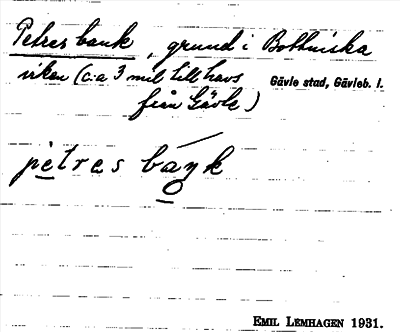 Petres bank, grund i Bottniska
viken (c:a 3 mil till havs
Gävle stad, Gävleb. l.
från Gävle)
petres bank
EMIL LEMHAGEN 1931.